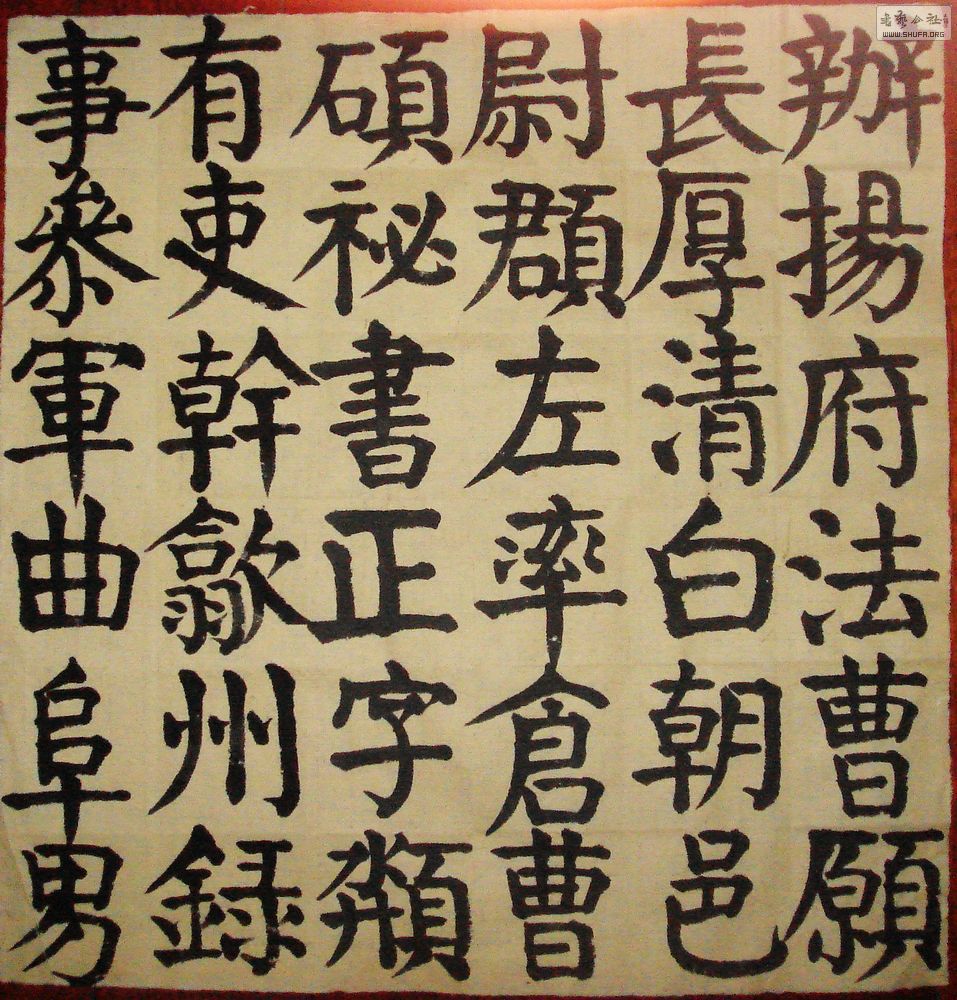 書藝公社
WWW.SHUFA.ORG
辦揚府法曹願
長厚清白朝邑
尉頵左率倉曹
碩祕書正字
有吏幹歙州録
事參軍曲阜男